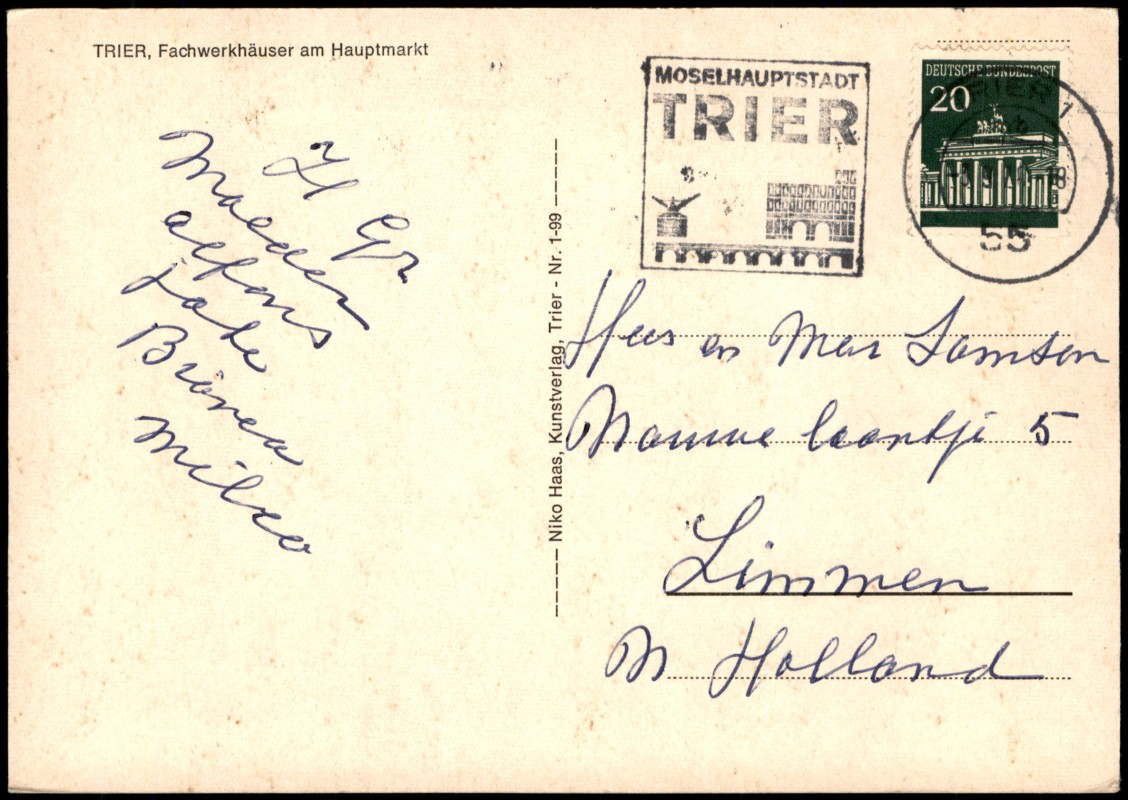 TRIER, Fachwerkhäuser am Hauptmarkt
H Gr
Moeder
alfons
Joke
Bianca
Milco
Niko Haas, Kunstverlag, Trier - Nr. 1-99
MOSELHAUPTSTADT
TRIER
DEUTSCHE BUNDESPOST
20
TRIER 1
55
Hees en Mar Samson
laantje 5
Limmen
N Holland